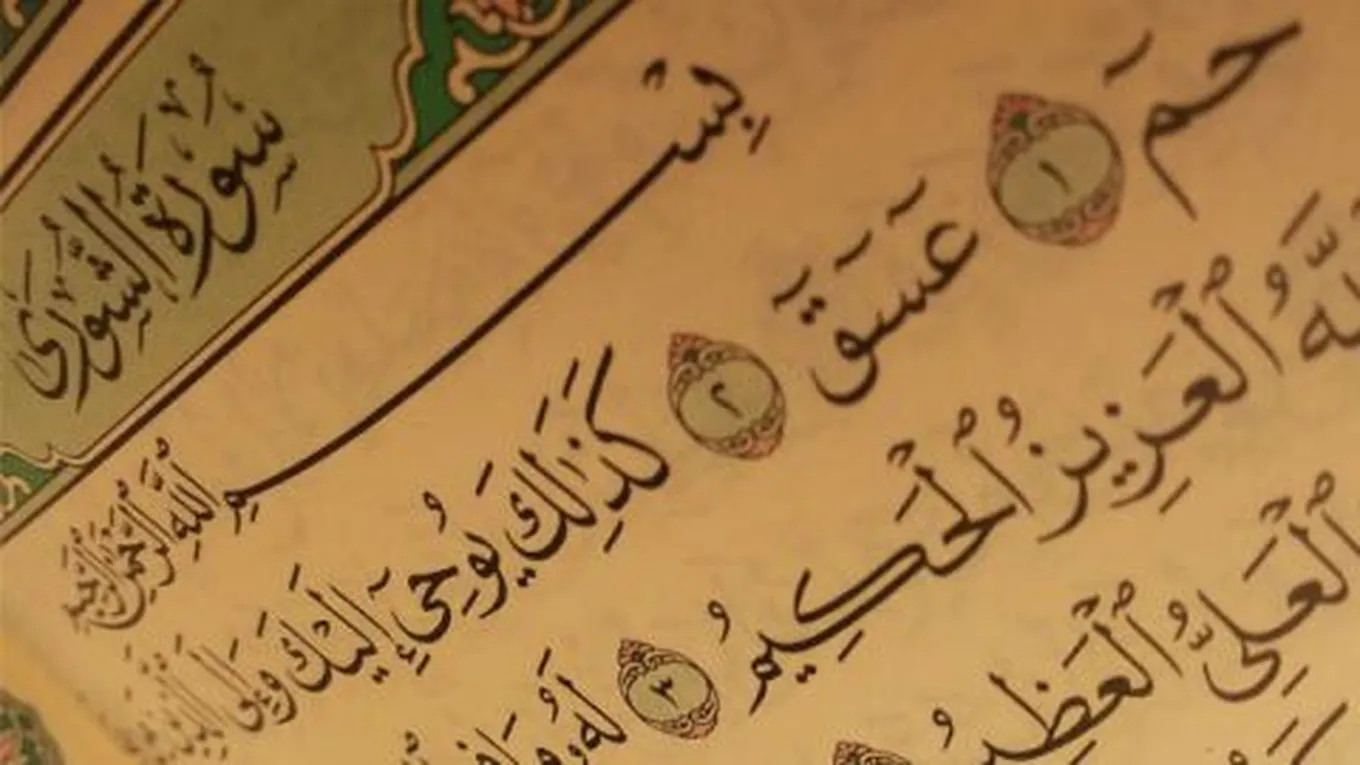 سُورَةُ الشُّورَىٰ
بِسْمِ ٱللَّهِ ٱلرَّحْمَٰنِ ٱلرَّحِيمِ
حمٓ ١ عٓسٓقٓ ٢ كَذَٰلِكَ يُوحِىٓ إِلَيْكَ وَإِلَى
ٱلْعَزِيزُ ٱلْحَكِيمُ ٣ لَهُۥ مَا فِى
ٱلْعَلِىُّ ٱلْعَظِيمُ